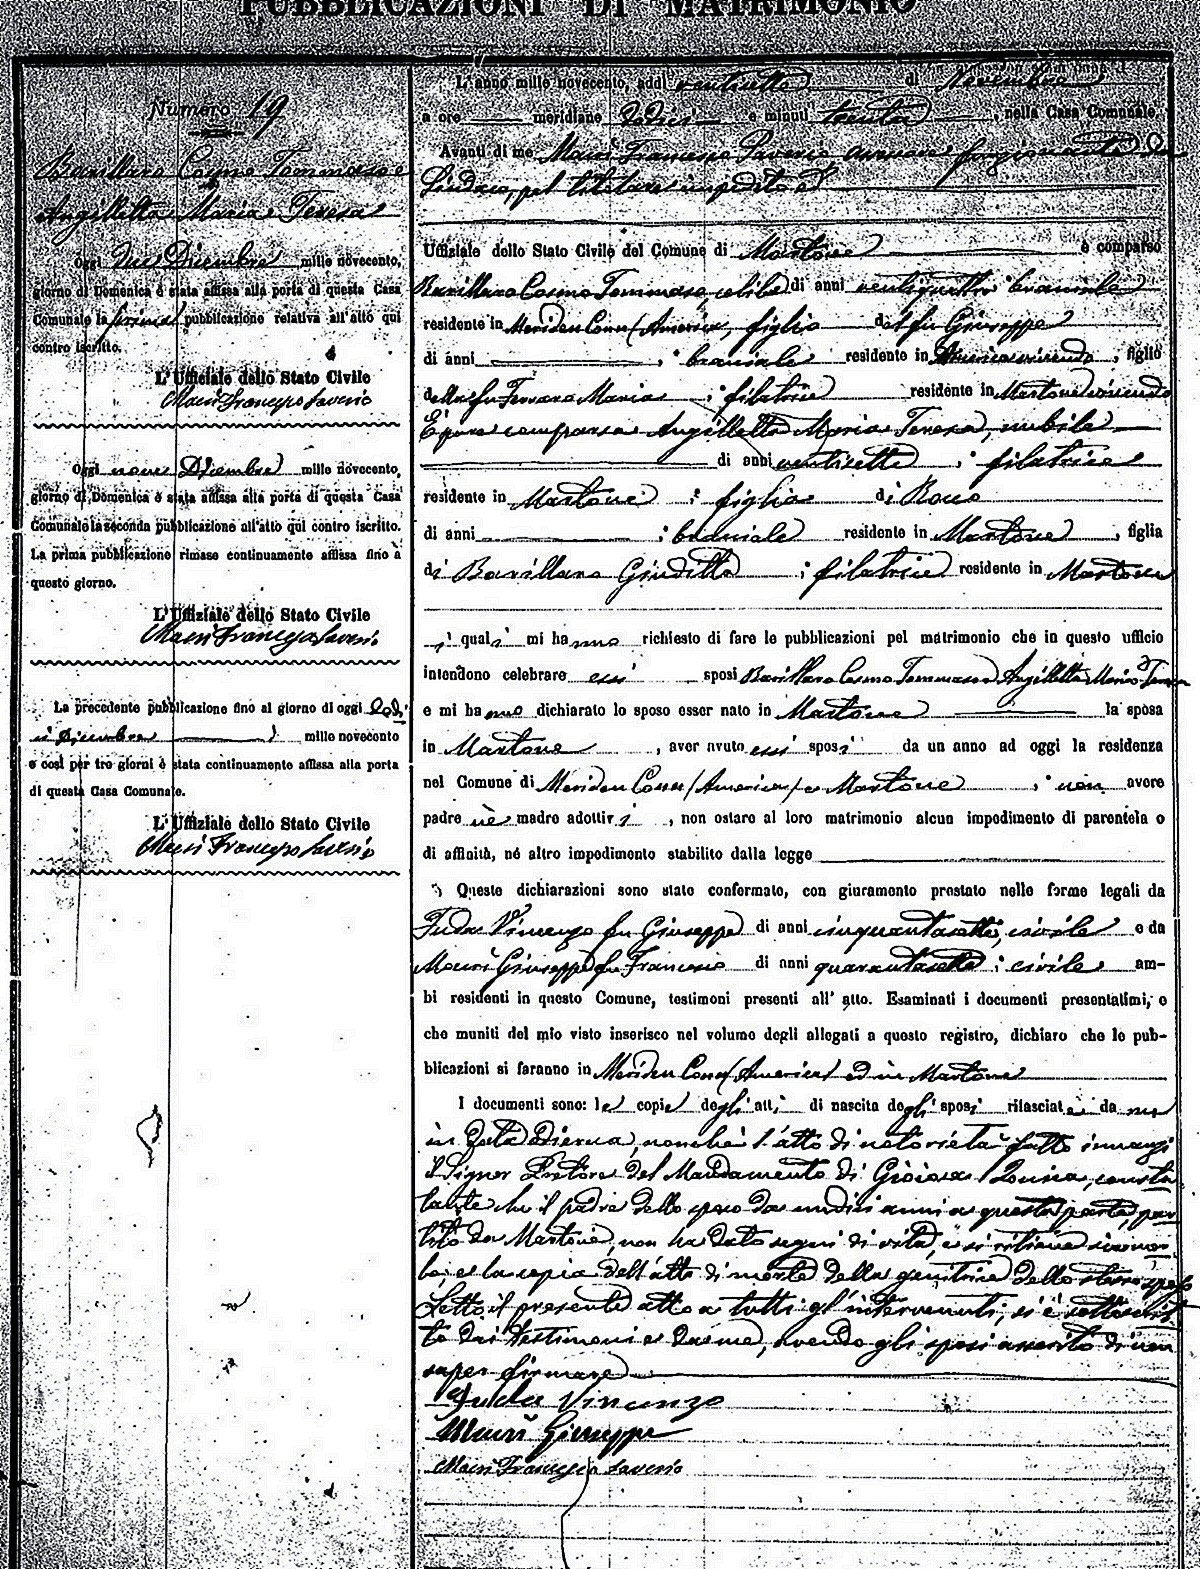 PUBBLICAZIONI DI MATRIMONIO
Numero 19
Barillaro Cosmo Tommaso e
Angilletta Maria Teresa
Oggi due Dicembre mille novecento,
giorno di Domenica è stata affissa alla porta di questa Casa
Comunale la prima pubblicazione relativa all'atto qui
contro iscritto.
L'Ufficiale dello Stato Civile
Macrì Francesco Saverio
Oggi nove Dicembre mille novecento,
giorno di Domenica è stata affissa alla porta di questa Casa
Comunale la seconda pubblicazione all'atto qui contro iscritto.
La prima pubblicazione rimase continuamente affissa fino a
questo giorno.
L'Uffiziale dello Stato Civile
Macrì Francesco Saverio
La precedente pubblicazione fino al giorno di oggi dodi
ci Dicembre mille novecento
e così per tre giorni è stata continuamente affissa alla porta
di questa Casa Comunale.
L'Uffiziale dello Stato Civile
Macrì Francesco Saverio
L'anno mille novecento, addì ventisette di Novembre
a ore meridiane dodici e minuti trenta, nella Casa Comunale.
Avanti di me Macrì Francesco Saverio, assessore funzionante da
Sindaco, pel titolare impedito
Uffiziale dello Stato Civile del Comune di Martone è comparso
Barillaro Cosmo Tommaso, celibe di anni ventiquattro bracciale
residente in Meriden Conn (America, figlio del fu Giuseppe
di anni ; bracciale residente in America vivendo, figlio
della fu Ferraro Maria ; filatrice residente in Martone vivendo
È pure comparsa Angilletta Maria Teresa, nubile
di anni ventisette ; filatrice
residente in Martone ; figlia di Rocco
di anni ; bracciale residente in Martone, figlia
di Barillaro Giuditta ; filatrice residente in Martone
i quali mi hanno richiesto di fare le pubblicazioni pel matrimonio che in questo ufficio
intendono celebrare essi sposi Barillaro Cosmo Tommaso e Angilletta Maria Teresa
e mi hanno dichiarato lo sposo esser nato in Martone la sposa
in Martone, aver avuto essi sposi da un anno ad oggi la residenza
nel Comune di Meriden Conn (America) e Martone ; non avere
padre nè madre adottivi, non ostare al loro matrimonio alcun impedimento di parentela o
di affinità, nè altro impedimento stabilito dalla legge
Queste dichiarazioni sono state confermate, con giuramento prestato nelle forme legali da
Juda Vincenzo fu Giuseppe di anni cinquantasette, civile e da
Macrì Giuseppe fu Francesco di anni quarantasette ; civile am-
bi residenti in questo Comune, testimoni presenti all'atto. Esaminati i documenti presentatimi, e
che muniti del mio visto inserisco nel volume degli allegati a questo registro, dichiaro che le pub-
blicazioni si faranno in Meriden Conn (America) ed in Martone
I documenti sono: le copie degli atti di nascita degli sposi rilasciate da me
in data odierna, nonchè l'atto di notorietà fatto innanzi
il Signor Pretore del Mandamento di Gioiosa Jonica, consta
tante che il padre dello sposo da undici anni a questa parte, par
tito da Martone, non ha dato segni di vita, e si ritiene
e la copia dell'atto di morte della genitrice dello stesso sposo
Letto il presente atto a tutti gl'intervenuti, si è sottoscrit
to dai testimoni e da me, avendo gli sposi asserito di non
saper firmare
Juda Vincenzo
Macrì Giuseppe
Macrì Francesco Saverio